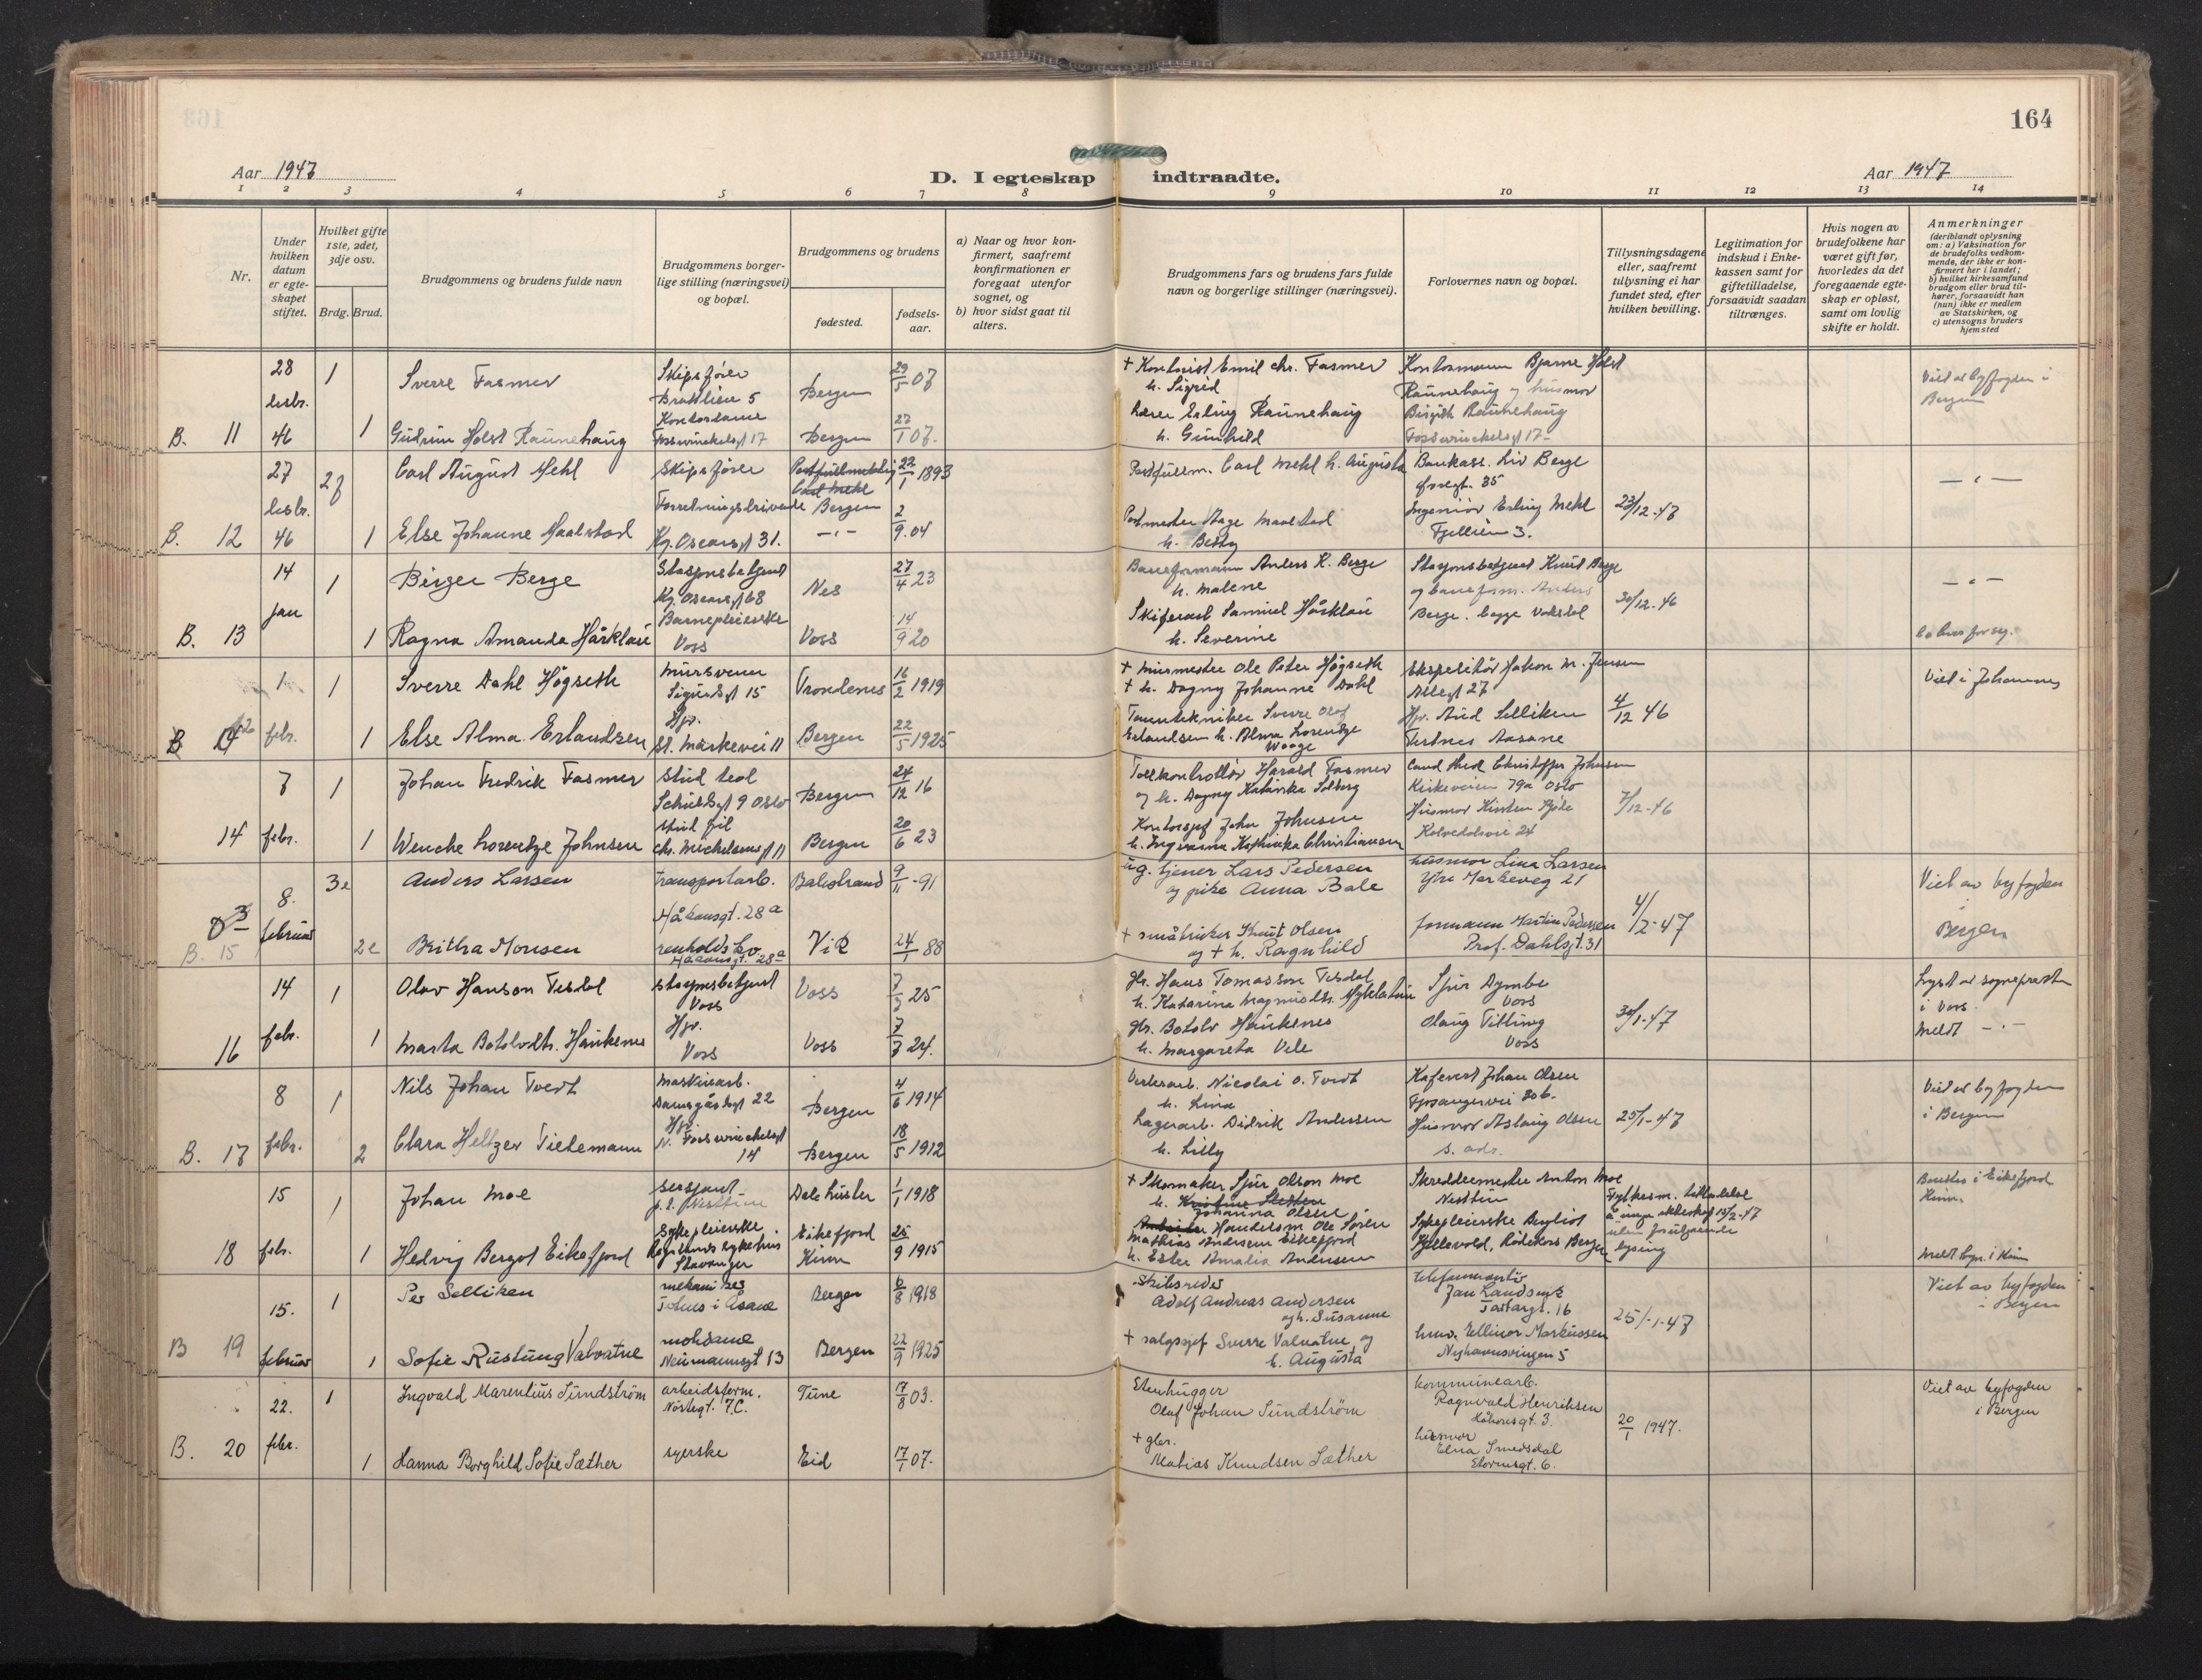 164
Aar 1947
D. I egteskap indtraadte.
Aar 1947
1 2 3 4 5 6 7 8 9 10 11 12 13 14
Nr.
Under hvilken datum er egteskapet stiftet.
Hvilket gifte 1ste, 2det, 3dje osv.
Brdg. Brud.
Brudgommens og brudens fulde navn
Brudgommens borgerlige stilling (næringsvei) og bopæl.
Brudgommens og brudens
fødested.
fødselsaar.
a) Naar og hvor konfirmert, saafremt konfirmationen er foregaat utenfor sognet, og
b) hvor sidst gaat til alters.
Brudgommens fars og brudens fars fulde navn og borgerlige stillinger (næringsvei).
Forlovernes navn og bopæl.
Tillysningsdagene eller, saafremt tillysning ei har fundet sted, efter hvilken bevilling.
Legitimation for indskud i Enkekassen samt for giftetilladelse, forsaavidt saadan tiltrænges.
Hvis nogen av brudefolkene har været gift før, hvorledes da det foregaaende egteskap er opløst, samt om lovlig skifte er holdt.
Anmerkninger
(deriblandt oplysning om: a) Vaksination for de brudefolks vedkommende, der ikke er konfirmert her i landet; b) hvilket kirkesamfund brudgom eller brud tilhører, forsaavidt han (hun) ikke er medlem av Statskirken, og c) utensogns bruders hjemsted
28 desbr. 46
1
Sverre Fasmer
Skipsfører
Brattlien 5
Bergen
29/5 07
+ Kontorist Emil Chr. Fasmer
h. Sigrid
Kontormann Bjarne Holst
Raunehaug og husmor
Viet av byfogden i
Bergen
B. 11
1
Gudrun Holst Raunehaug
Kontordame
Fosswinckelsgt 17
Bergen
27/1 07.
Lærer Erling Raunehaug
h. Gunhild
Birgith Raunehaug
Fosswinckelsgt 17
27 desbr. 46
Carl August Mehl
Skipsfører
22/1 1893
Carl Mehl h. Augusta
Bankass. Liv Berge
35
B. 12
1
Else Johanne Maalstad
Forretningsdrivende
Kg. Oscarsgt 31.
Bergen
2/9.04
Postmester Aage Maalstad
h. Betty
Ingeniør Erling Mehl
Fjellien 3.
23/12-47
14 jan
1
Birger Berge
Stasjonsbetjent
Kg. Oscarsgt 68
Nes
27/4 23
Baneformann Anders K. Berge
h. Malene
Stasjonsbetjent Knut Berge
og baneform. Anders
Berge, begge Voksdal
30/12-46
B. 13
1
Ragna Amanda Hårklau
Barnepleierske
Voss
Voss
14/9 20
Samuel Hårklau
h. Severine
1 febr.
1
Sverre Dahl Høgseth
Mursvenn
Sigurdsgt 15
Trondenes
16/2 1919
+ Murmester Ole Peter Høgseth
+ h. Dagny Johanne Dahl
Ekspeditør Hakon M. Jensen
Allegt 27
4/12 46
Viet i Johannes
B
1
Else Alma Erlandsen
Hjv.
St. Markevei 11
Bergen
22/5 1925
Tanntekniker Sverre Olaf
Erlandsen h. Alma Lorentze
Waage
Hjv. Aud Selliken
Tertnes Aasane
7 febr.
1
Johan Fredrik Fasmer
Stud teol
Schultzgt 9 Oslo
Bergen
24/12 16
Tollkontrollør Harald Fasmer
og h. Dagny Katinka Solberg
Cand. Med. Christoffer Johnsen
Kirkeveien 79a Oslo
7/12-46
14
1
Wenche Lorentze Johnsen
Stud fil
Chr. Michelsensgt 11
Bergen
20/6 23
Kontorsjef John Johnsen
h. Ingvarna Kathinka Christiansen
Husmor Kirsten
24
8. februar
3e
Anders Larsen
transportarb.
Håkonsgt. 28a
Balestrand
9/11-91
ug. tjener Lars Pedersen
og pike Anna Bale
husmor Lina Larsen
Ytre Markeveg 21
4/2-47
Viet av byfogden
i
Bergen
B. 15
2e
Britha Monsen
Håkonsgt. 28a
Vik
24/1 88
+ småbruker Knut Olsen
og + h. Ragnhild
formann Martin Pedersen
Prof. Dahlsgt. 31
14 febr.
1
Olav Hanson Tesdal
Stasjonsbetjent
Voss
Voss
25
Gbr. Hans Tomasson Tesdal
h. Katarina Magnusdtr. Mykletun
Sjur Dymbe
Voss
30/1-47
Lyst av sognepresten
i Voss
Meldt -"-
16
1
Marta Botolvdtr. Haukenes
Hjv.
Voss
Voss
24.
Gbr. Botolv Haukenes
h. Margareta Vele
Olaug Tilling
Voss
8 febr.
1
Nils Johan Tvedt
Maskinarb.
Damsgårdsgt 22
Bergen
4/6 1914
Verkarb. Nicolai O. Tvedt
h. Lina
Kafevert Johan Olsen
Fjøsangervei 30b.
25/1-47
Viet av byfogden
i Bergen
B. 17
2
Clara Heltzer Tielemann
Hjv.
N. Fosswinckelsgt
14
Bergen
18/5 1912
Lagerarb. Didrik Andersen
h. Lilly
Husmor Aslaug Olsen
s. adr.
15 febr.
1
Johan Moe
Sersjant
Dale Luster
1/1 1918
+ Skomaker Sjur Olson Moe
Johanna Olsen
Skreddermester Anton Moe
Nesttun
Fylkesm. tilladelse
15/2-47
uten forutgaaende
lysing
Eikefjord
Kinn.
18
1
Hedvig Bergot Eikefjord
Sykepleierske
Rogalands sykehus
Stavanger
Eikefjord
Kinn
25/9 1915
Handelsm. Ole Søren
Mathias Andersen Eikefjord
h. Ester Amalia Andersen
Sykepleierske Bergliot
Gjellevold, Rødekors Bergen
Meldt Sogn. i Kinn
15. februar
1
Per Selliken
mekaniker
Tertnes i Åsane
Bergen
6/8 1918
Skibsreder
Adolf Andreas Andersen
og h. Susanne
telefonmontør
Jan Landsvik
Tartargt. 16
25/-1-47
Viet av byfogden
i Bergen
B 19
1
Sofie Rustung Valvatne
motedame
Neumannsgt 13
Bergen
22/9 1925
+ salgssjef Sverre Valvatne og
h. Augusta
husm. Ellinor Markussen
Nyhavnsvingen 5
22. febr.
1
Ingvald Marentius Sundström
arbeidsform.
Nostegt. 7.C.
Tune
17/8 03.
Stenhugger
Oluf Johan Sundström
kommunearb.
Ragnvald Henriksen
Håkonsgt. 3.
20/1 1947.
Viet av byfogden
i Bergen
B. 20
1
Hanna Borghild Sofie Sæther
syerske
Eid
17/1 07.
+ gbr.
Matias Knudsen Sæther
husmor
Elna Smedsdal
Stormsgt. 6.